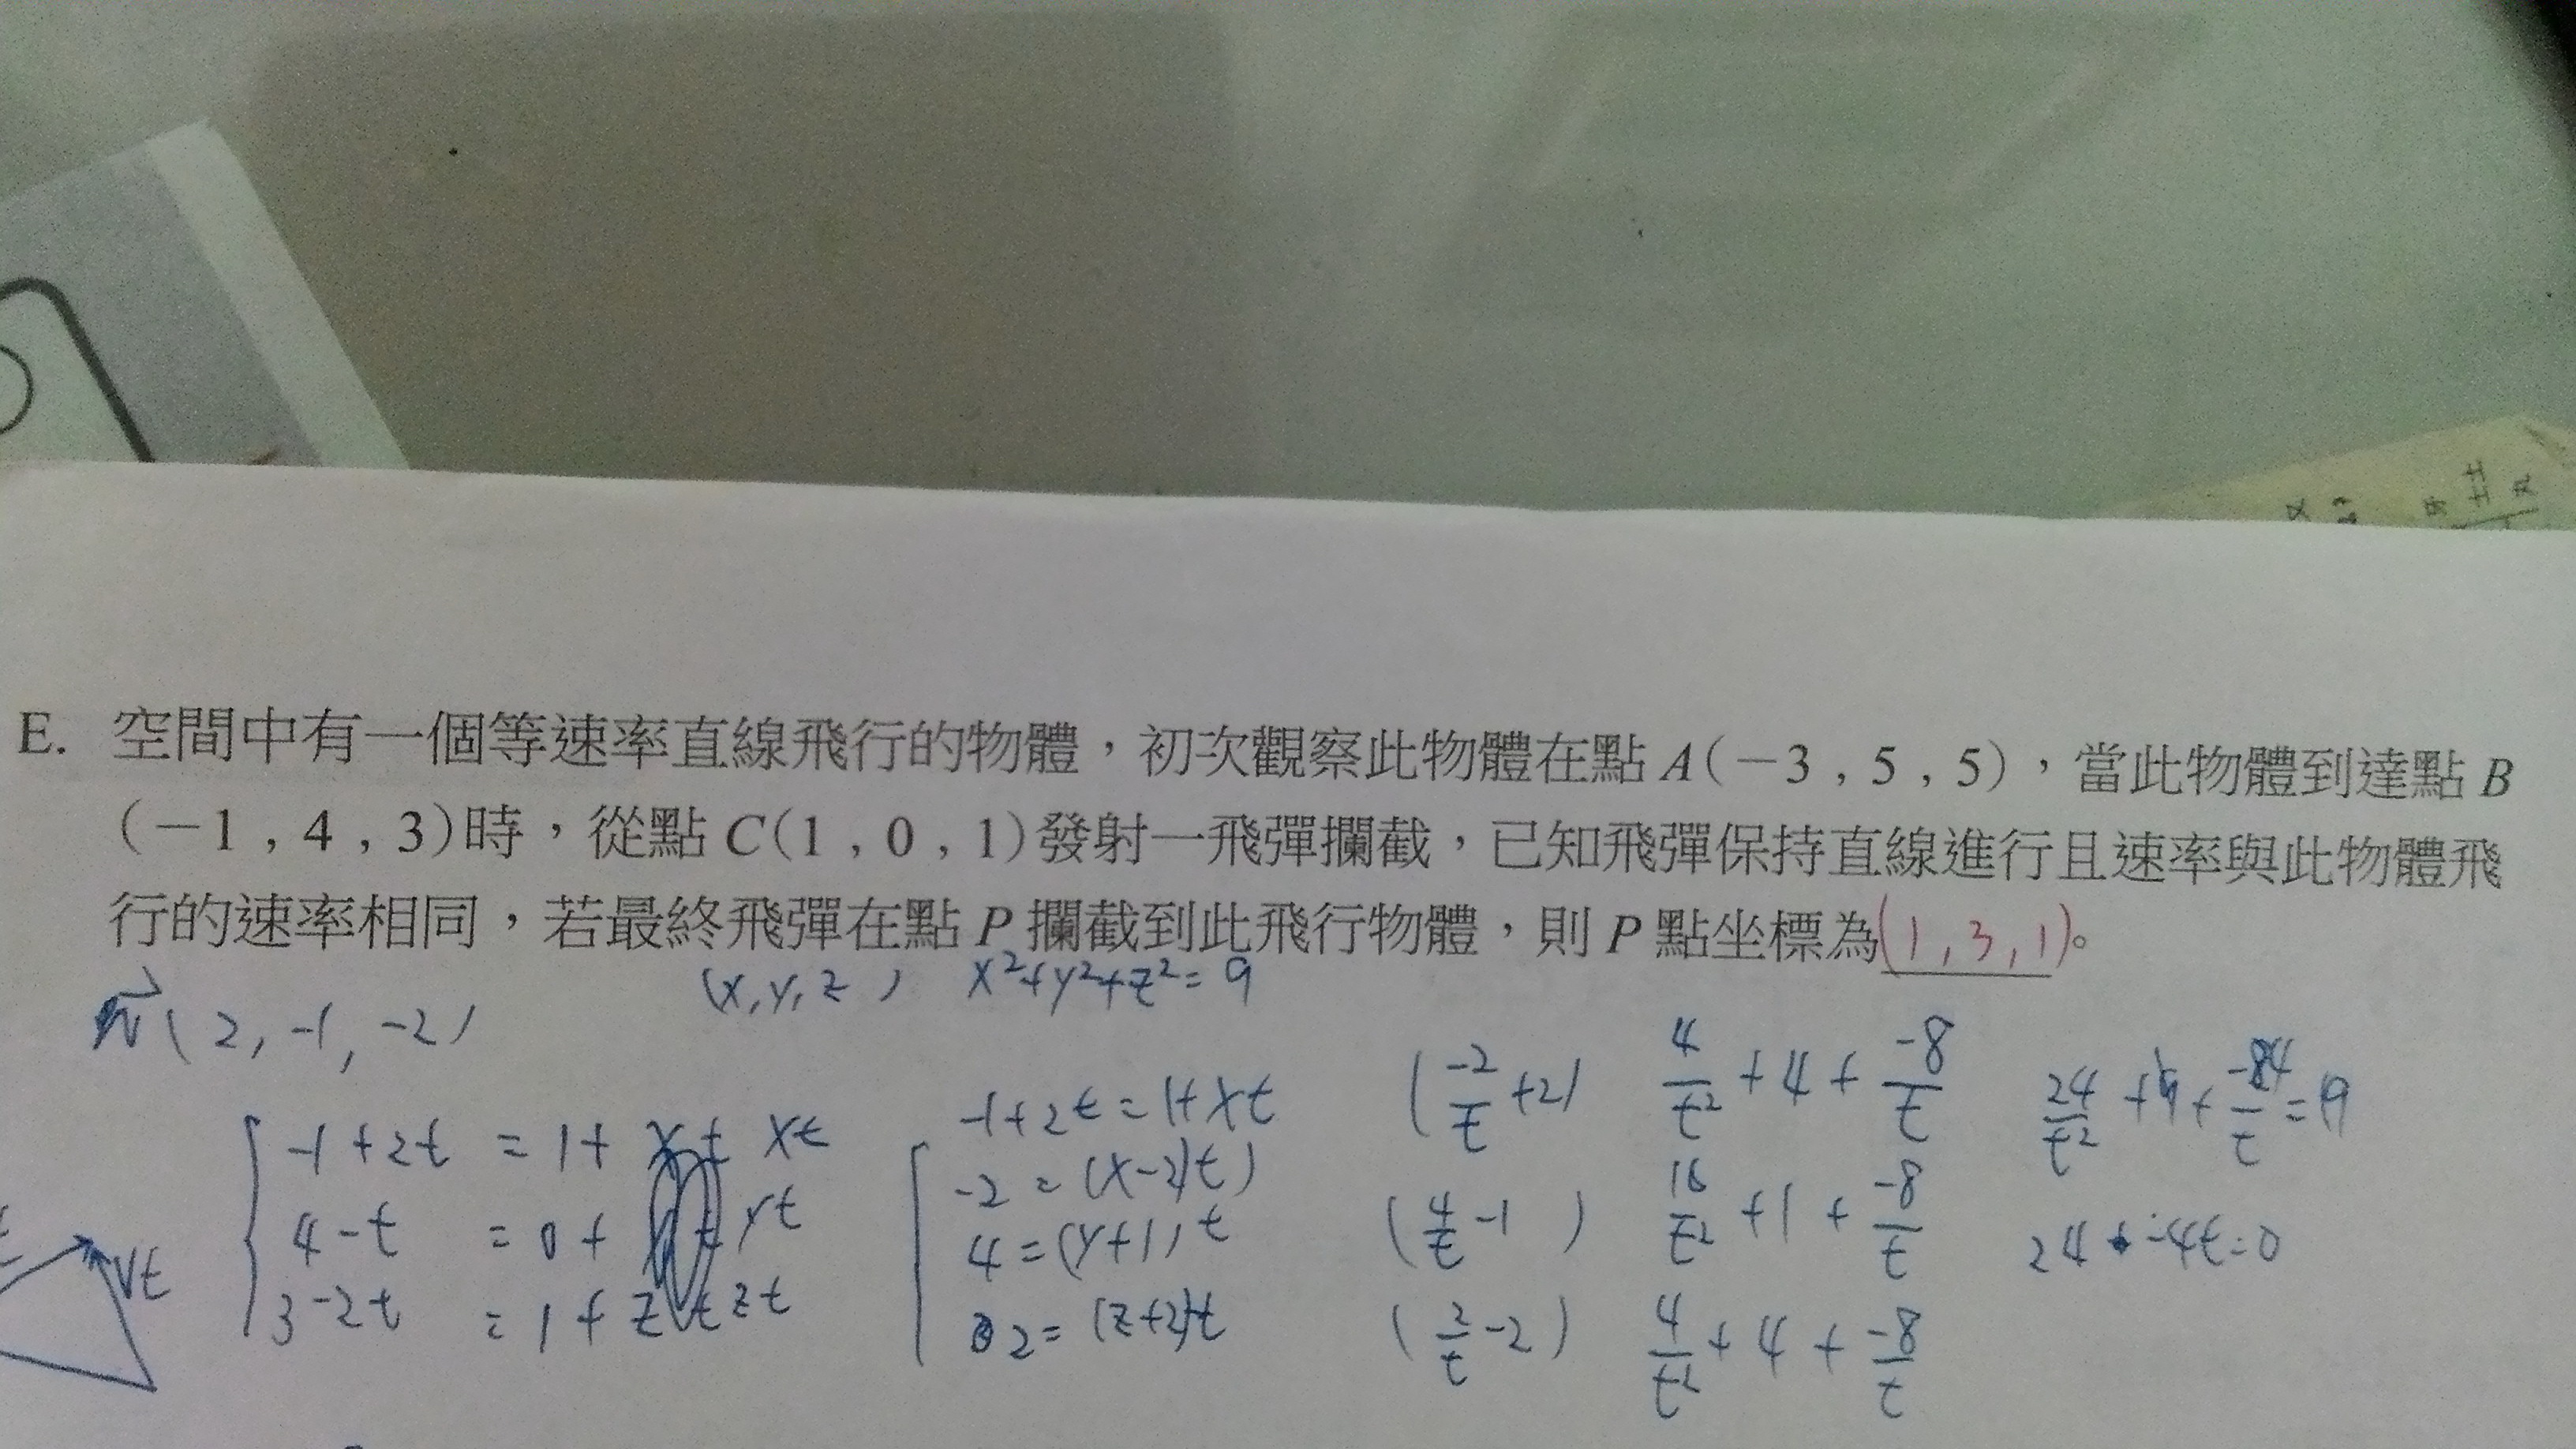 E. 空間中有一個等速率直線飛行的物體，初次觀察此物體在點 A(−3 , 5 , 5)，當此物體到達點 B
(−1 , 4 , 3)時，從點 C(1 , 0 , 1)發射一飛彈攔截，已知飛彈保持直線進行且速率與此物體飛
行的速率相同，若最終飛彈在點 P 攔截到此飛行物體，則 P 點坐標為(1 , 3 , 1)。
(x, y, z) x²+y²+z²=9
(2, -1, -2)
-1+2t = 1+ xt
4-t = 0+ yt
3-2t = 1+ zt
vt
-1+2t=1+xt
-2=(x-2)t)
4=(y+1)t
2=(z+2)t
(-2/t +2)
(4/t -1)
(2/t -2)
4/t² +4+ -8/t
16/t² +1+ -8/t
4/t² +4+ -8/t
24/t² +9+
24 -4t=0